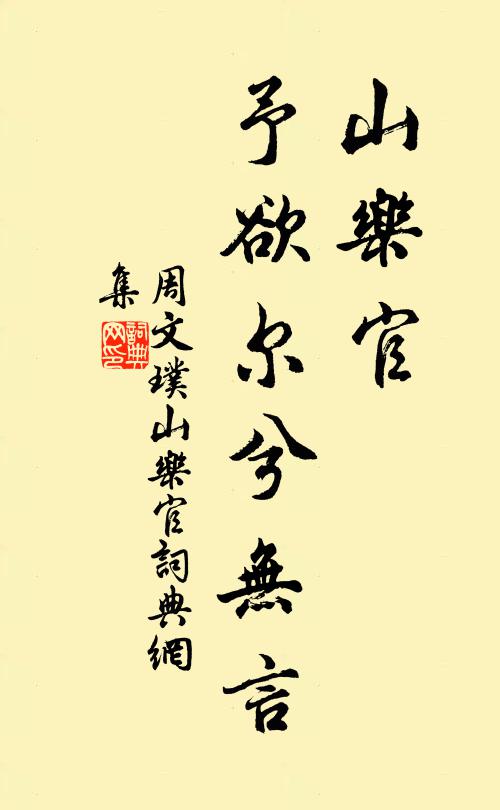 山樂官
予欲尔兮無言
周文璞山樂官詞典網
集
詞典
网印